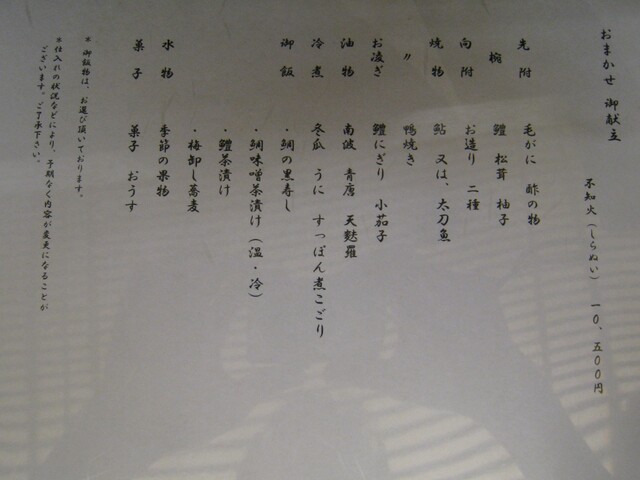 おまかせ 御献立
不知火(しらぬい) 一〇、五〇〇円
先附 毛がに 酢の物
椀 鱧 松茸 柚子
向附 お造り 二種
焼物 鮎 又は、太刀魚
〃 鴨焼き
お凌ぎ 鱧にぎり 小茄子
油物 南波 青唐 天麩羅
冷煮 冬瓜 うに すっぽん煮こごり
御飯 ・鯛の黒寿し
・鯛味噌茶漬け(温・冷)
・鱧茶漬け
・梅卸し蕎麦
水物 季節の果物
菓子 菓子 おうす
* 御飯物は、お選び頂いております。
*仕入れの状況などにより、予期なく内容が変更になることが
ございます。ご了承下さい。